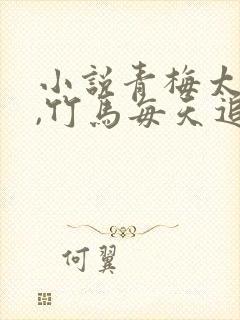 小説青梅太
,竹馬每天追
何翼